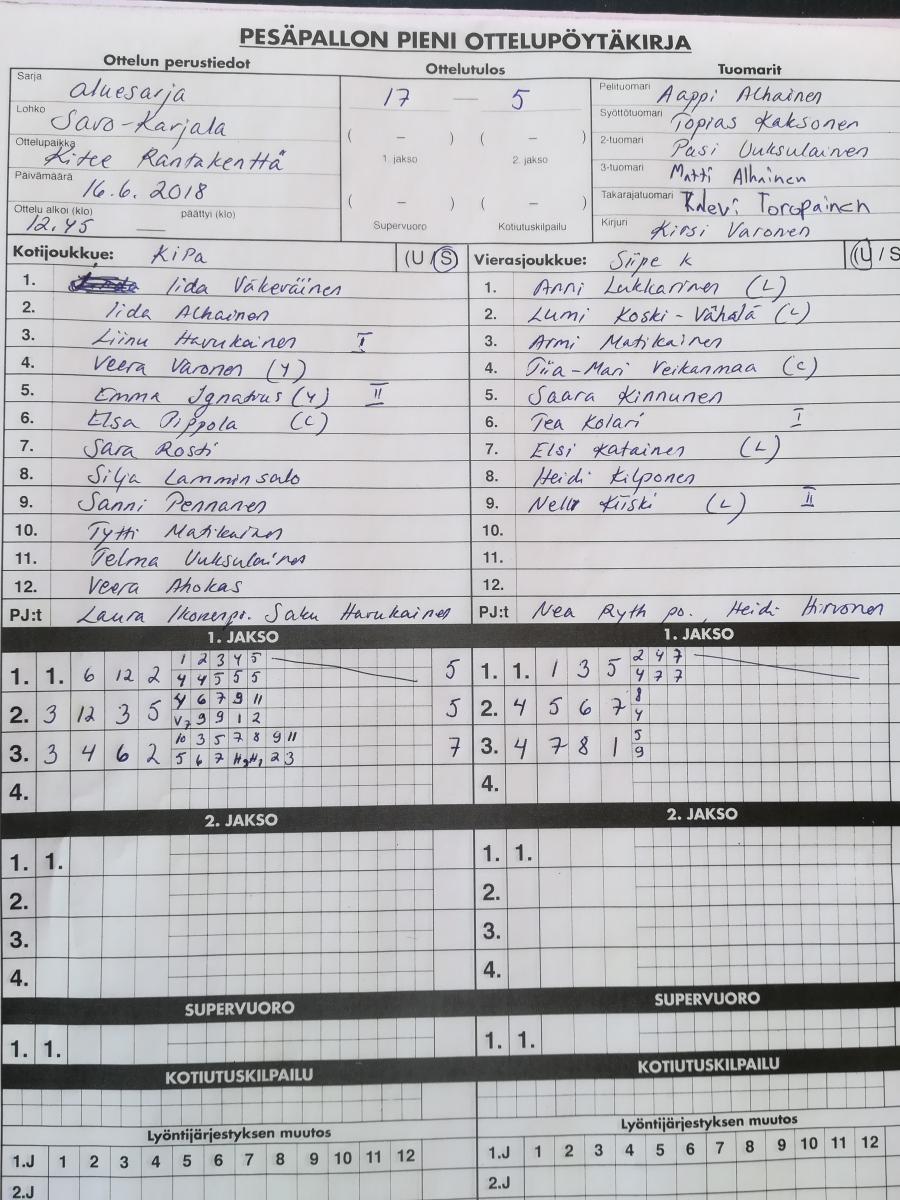 PESÄPALLON PIENI OTTELUPÖYTÄKIRJA
Ottelun perustiedot
Ottelutulos
Tuomarit
Sarja
aluesarja
Lohko
Savo-Karjala
Ottelupaikka
Kitee Rantakenttä
Päivämäärä
16.6.2018
Ottelu alkoi (klo) päättyi (klo)
12.45 —
17 — 5
( – ) ( – )
1. jakso 2. jakso
( – ) ( – )
Supervuoro Kotiutuskilpailu
Pelituomari Aappi Alhainen
Syöttötuomari Topias Kaksonen
2-tuomari Pasi Uuksulainen
3-tuomari Matti Alhainen
Takarajatuomari Kalevi Toropainen
Kirjuri Kirsi Varonen
Kotijoukkue: KiPa (U / S
1. Iida Väkeväinen
2. Iida Alhainen
3. Liinu Havukainen I
4. Veera Varonen (Y)
5. Emma Ignatius (Y) II
6. Elsa Pippola (C)
7. Sara Rosti
8. Silja Lamminsalo
9. Sanni Pennanen
10. Tytti Matikainen
11. Telma Uuksulainen
12. Veera Ahokas
PJ:t Laura Ikonen pr. Saku Havukainen
Vierasjoukkue: Siipe k (U / S
1. Anni Lukkarinen (L)
2. Lumi Koski-Vähälä (L)
3. Armi Matikainen
4. Tiia-Mari Veikanmaa (C)
5. Saara Kinnunen
6. Tea Kolari I
7. Elsi Katainen (L)
8. Heidi Kilponen
9. Nella Kiiski (L) II
10.
11.
12.
PJ:t Nea Ryth po. Heidi Hirvonen
1. JAKSO
1. 1. 6 12 2 1 2 3 4 5 5
4 4 5 5 5
2. 3 12 3 5 4 6 7 9 11 5
V7 9 9 1 2
3. 3 4 6 2 10 3 5 7 8 9 11 7
5 6 7 H2 H1 2 3
4.
1. JAKSO
1. 1. 1 3 5 2 4 7
4 7 7
2. 4 5 6 7 8
4
3. 4 7 8 1 5
9
4.
2. JAKSO
1. 1.
2.
3.
4.
2. JAKSO
1. 1.
2.
3.
4.
SUPERVUORO
1. 1.
SUPERVUORO
1. 1.
KOTIUTUSKILPAILU
KOTIUTUSKILPAILU
Lyöntijärjestyksen muutos
1.J 1 2 3 4 5 6 7 8 9 10 11 12
2.J
Lyöntijärjestyksen muutos
1.J 1 2 3 4 5 6 7 8 9 10 11 12
2.J